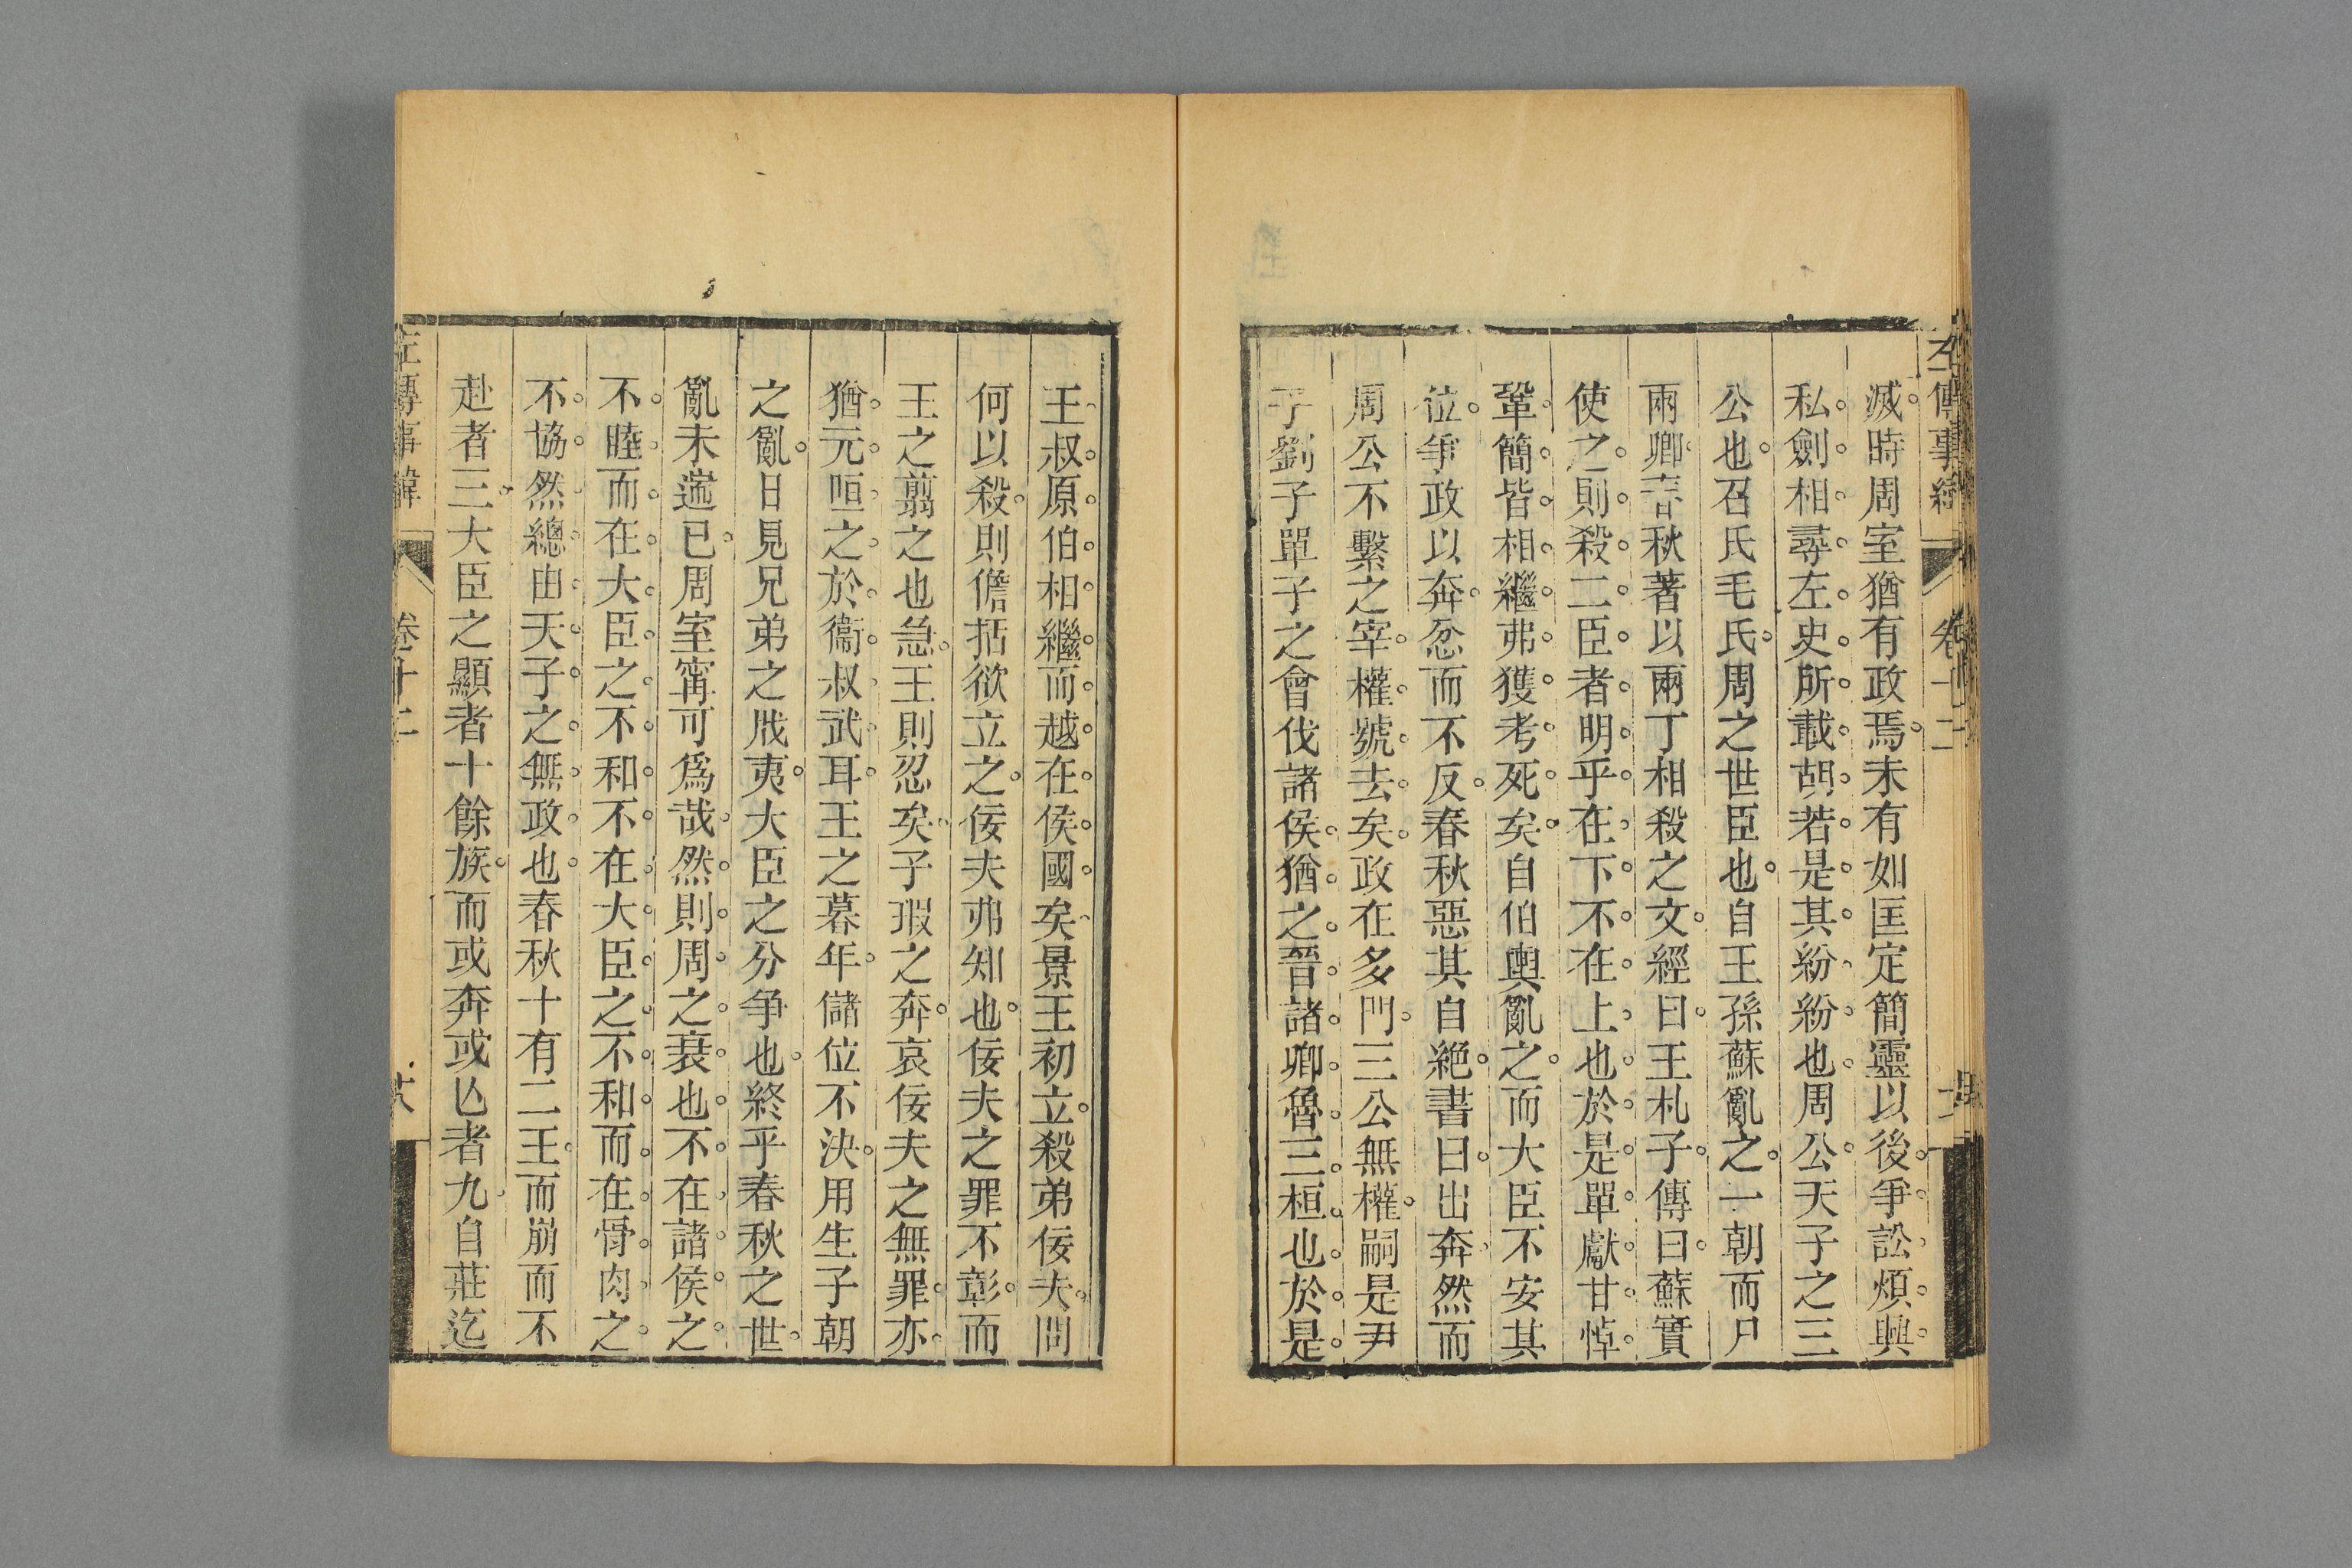 左傳事緯 卷十二
滅時周室猶有政焉未有如匡定簡靈以後爭訟煩興
私劍相尋左史所載胡若是其紛紛也周公天子之三
公也召氏毛氏周之世臣也自王孫蘇亂之一朝而尸
兩卿春秋著以兩下相殺之文經曰王札子傳曰蘇實
使之則殺二臣者明乎在下不在上也於是單獻甘悼
鞏簡皆相繼弗獲考死矣自伯輿亂之而大臣不安其
位爭政以奔忿而不反春秋惡其自絶書曰出奔然而
周公不繫之宰權號去矣政在多門三公無權嗣是尹
子劉子單子之會伐諸侯猶之晉諸卿魯三桓也於是
王叔原伯相繼而越在侯國矣景王初立殺弟佞夫問
何以殺則儋括欲立之佞夫弗知也佞夫之罪不彰而
王之翦之也急王則忍矣子瑕之奔哀佞夫之無罪亦
猶元咺之於衞叔武耳王之暮年儲位不決用生子朝
之亂日見兄弟之戕夷大臣之分争也終乎春秋之世
亂未遄已周室甯可爲哉然則周之衰也不在諸侯之
不睦而在大臣之不和不在大臣之不和而在骨肉之
不協然總由天子之無政也春秋十有二王而崩而不
赴者三大臣之顯者十餘族而或奔或亾者九自莊迄
左傳事緯 卷十二